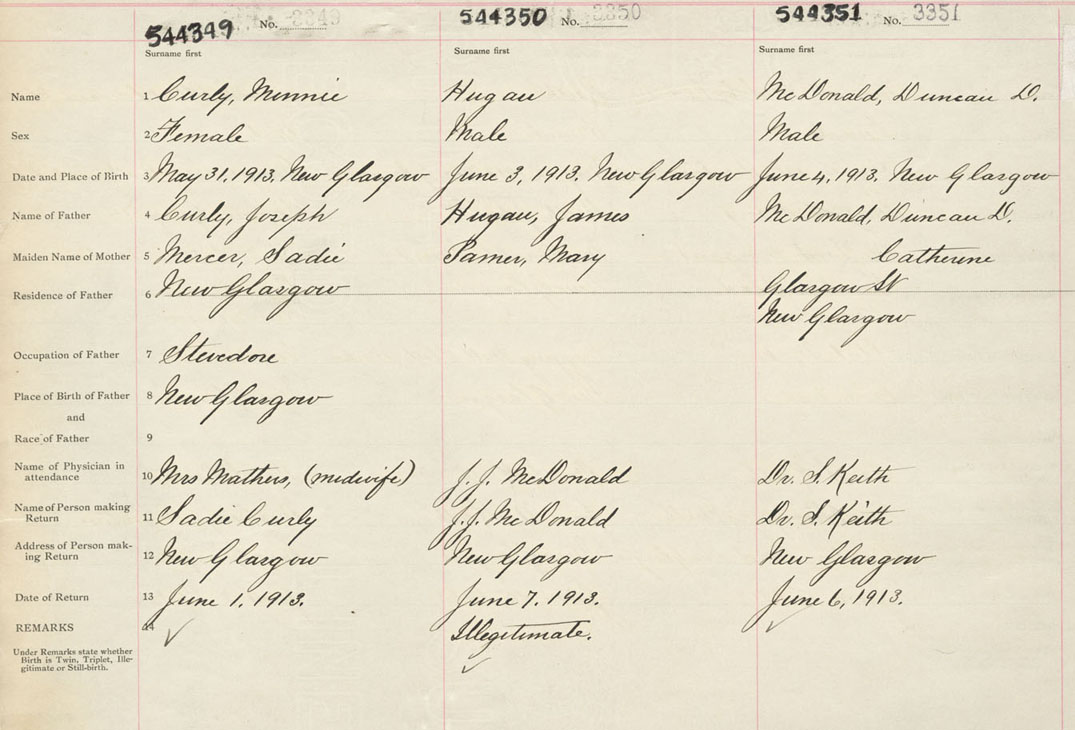 544349 No. 3349 544350 No. 3350 544351 No. 3351
Surname first Surname first Surname first
Name 1 Curly, Minnie Hugau McDonald, Duncan D.
Sex 2 Female Male Male
Date and Place of Birth 3 May 31, 1913. New Glasgow June 3, 1913. New Glasgow June 4, 1913. New Glasgow
Name of Father 4 Curly, Joseph Hugau, James McDonald, Duncan D.
Maiden Name of Mother 5 Mercer, Sadie Mary Catherine
Residence of Father 6 New Glasgow Glasgow St
New Glasgow
Occupation of Father 7 Stevedore
Place of Birth of Father 8 New Glasgow
and
Race of Father 9
Name of Physician in
attendance 10 Mrs Mathers, (midwife) J. J. McDonald Dr. S. Keith
Name of Person making
Return 11 Sadie Curly J. J. McDonald Dr. S. Keith
Address of Person mak-
ing Return 12 New Glasgow New Glasgow New Glasgow
Date of Return 13 June 1, 1913. June 7, 1913. June 6, 1913.
REMARKS 14 Illegitimate.
Under Remarks state whether
Birth is Twin, Triplet, Ille-
gitimate or Still-birth.